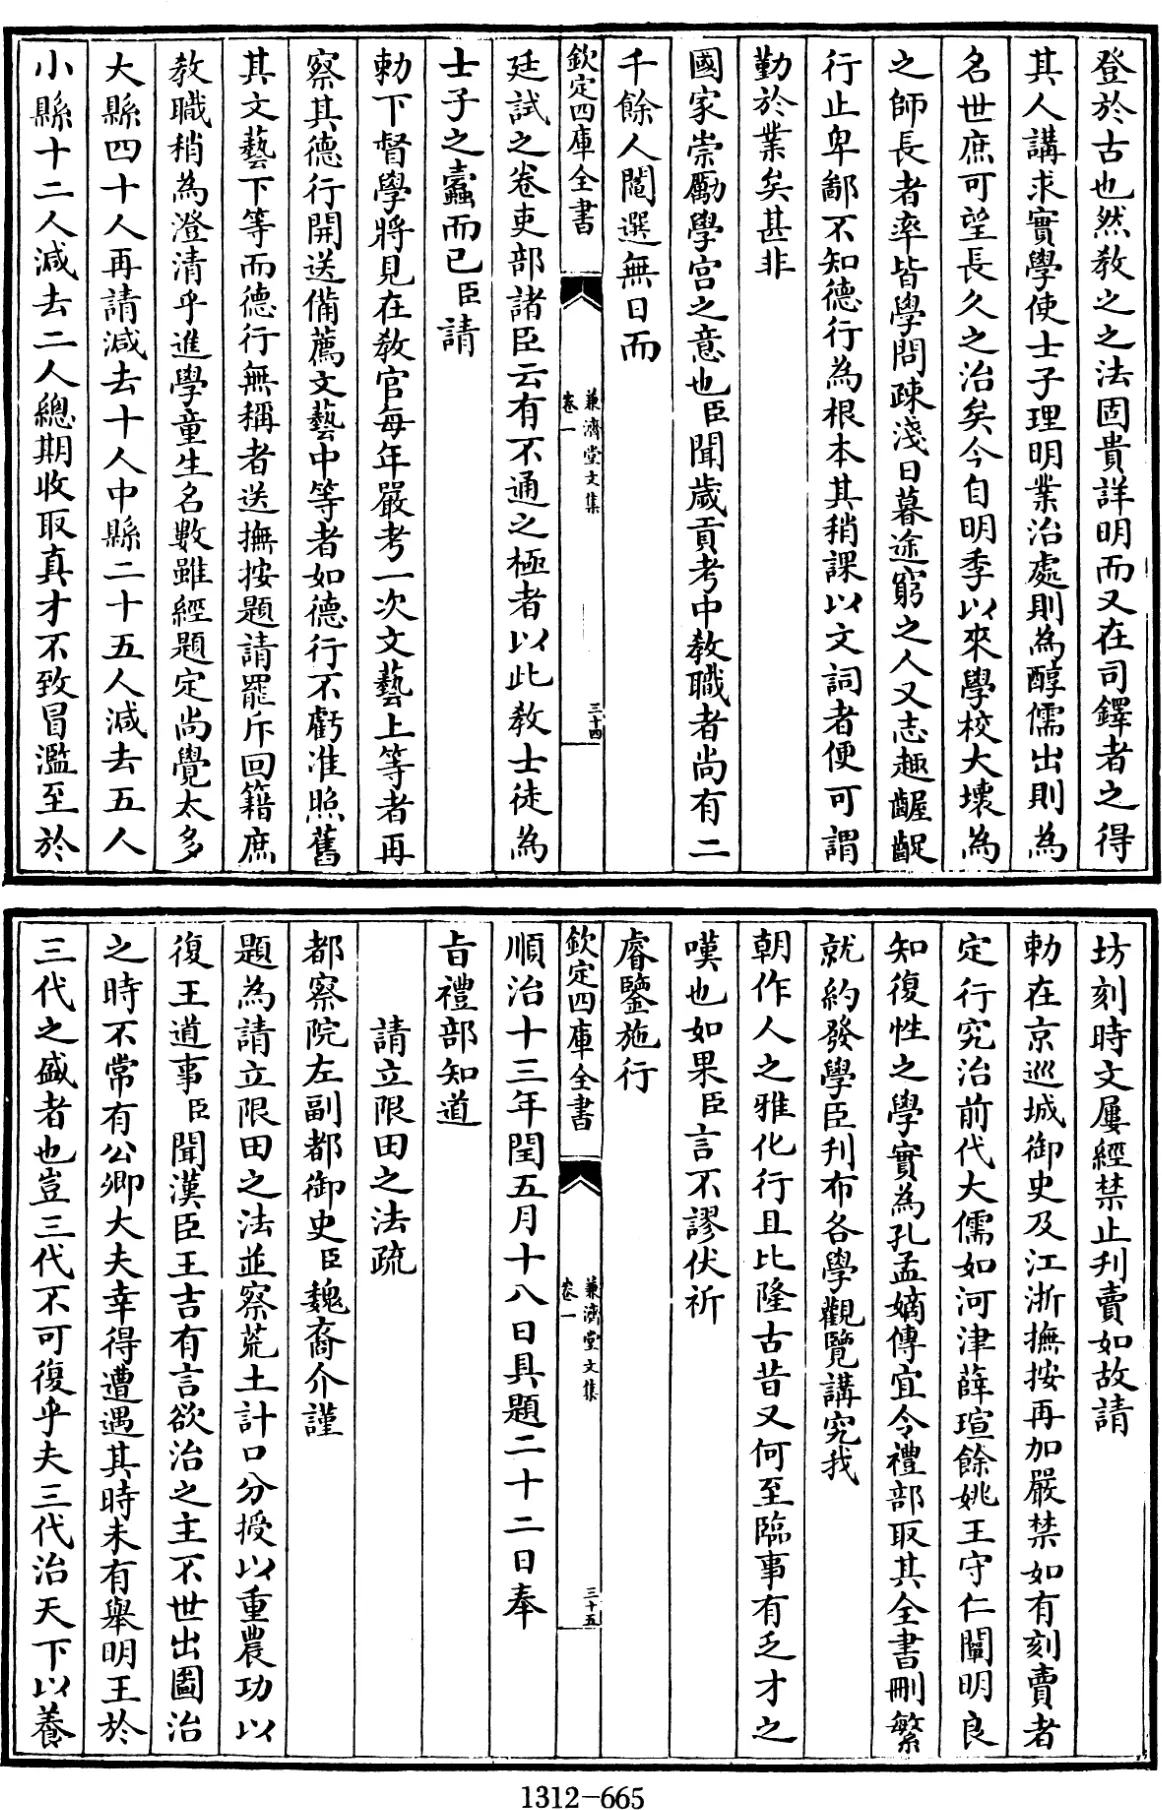 登於古也然教之之法固貴詳明而又在司鐸者之得
其人講求實學使士子理明業治處則為醇儒出則為
名世庶可望長久之治矣今自明季以來學校大壞為
之師長者率皆學問疎淺日暮途窮之人又志趣齷齪
行止卑鄙不知德行為根本其稍課以文詞者便可謂
勤於業矣甚非
國家崇勵學宮之意也臣聞歲貢考中教職者尚有二
千餘人閣選無日而
欽定四庫全書
兼濟堂文集
卷一
三十四
廷試之卷吏部諸臣云有不通之極者以此教士徒為
士子之蠹而已臣請
勅下督學將見在教官每年嚴考一次文藝上等者再
察其德行開送備薦文藝中等者如德行不虧准照舊
其文藝下等而德行無稱者送撫按題請罷斥回籍庶
教職稍為澄清乎進學童生名數雖經題定尚覺太多
大縣四十人再請減去十人中縣二十五人減去五人
小縣十二人減去二人總期收取真才不致冒濫至於
坊刻時文屢經禁止刋賣如故請
勅在京巡城御史及江浙撫按再加嚴禁如有刻賣者
定行究治前代大儒如河津薛瑄餘姚王守仁闡明良
知復性之學實為孔孟嫡傳宜令禮部取其全書刪繁
就約發學臣刋布各學觀覽講究我
朝作人之雅化行且比隆古昔又何至臨事有乏才之
嘆也如果臣言不謬伏祈
睿鑒施行
欽定四庫全書
兼濟堂文集
卷一
三十五
順治十三年閏五月十八日具題二十二日奉
旨禮部知道
請立限田之法疏
都察院左副都御史臣魏裔介謹
題為請立限田之法並察荒土計口分授以重農功以
復王道事臣聞漢臣王吉有言欲治之主不世出圖治
之時不常有公卿大夫幸得遭遇其時未有舉明王於
三代之盛者也豈三代不可復乎夫三代治天下以養
1312-665